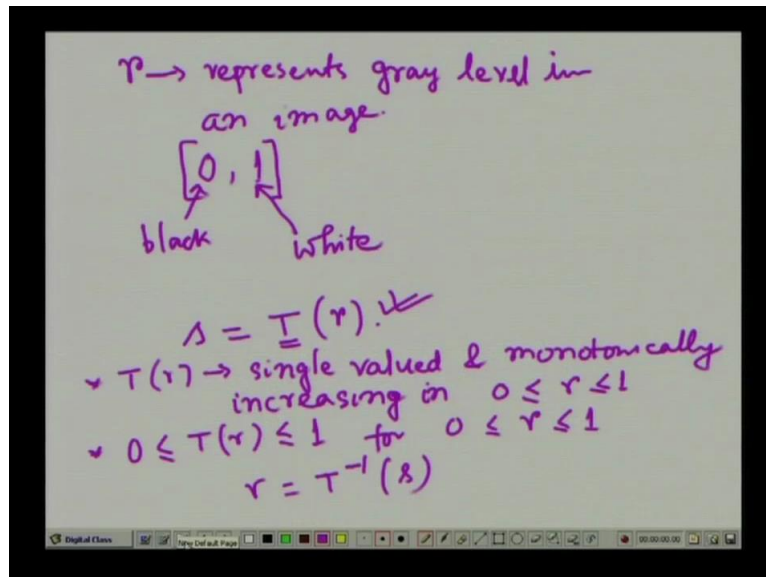 r → represents gray level in
an image.
[0, 1]
black white
s = T(r).
* T(r) → single valued & monotonically
increasing in 0 ≤ r ≤ 1
* 0 ≤ T(r) ≤ 1 for 0 ≤ r ≤ 1
r = T⁻¹(s)
Digital Class New Default Page 00:00:00.00